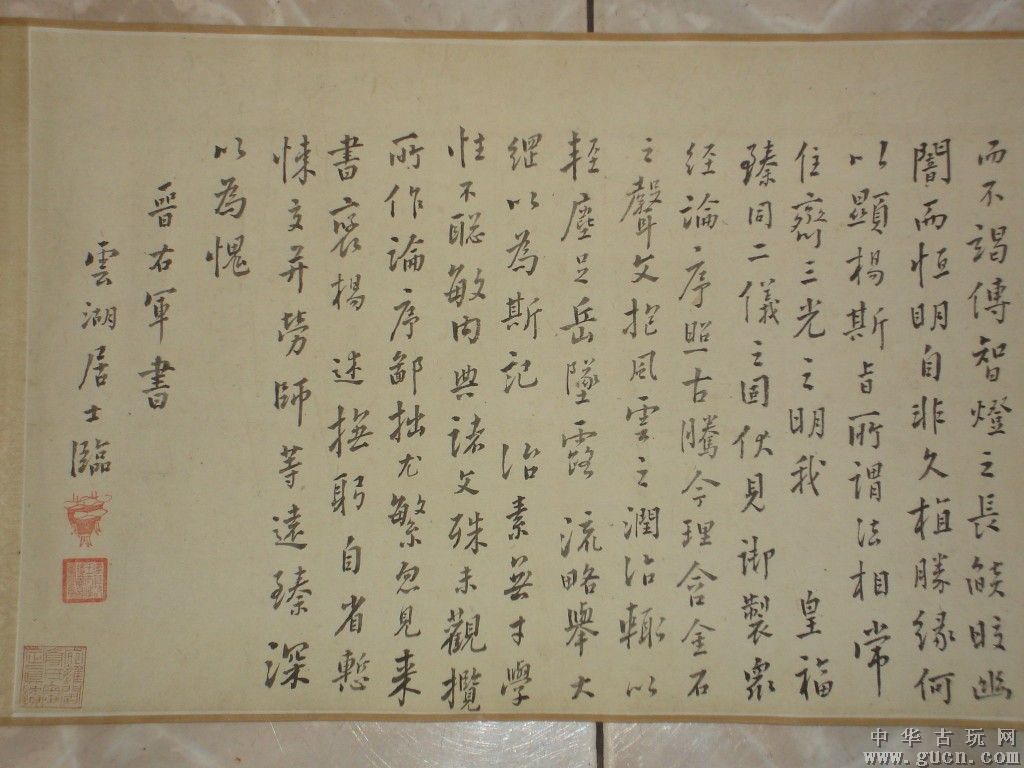 而不竭傳智燈之長燄皎幽
闇而恒明自非久植勝緣何
以顯楊斯旨所謂法相常
住齊三光之明我 皇福
臻同二儀之固伏見御製眾
經論序照古騰今理含金石
之聲文抱風雲之潤治輒以
輕塵足岳墜露 流略舉大
綱以為斯記 治素無才學
性不聰敏內典諸文殊未觀攬
所作論序鄙拙尤繁忽見來
書褒楊 述撫躬自省慙
悚交并勞師等遠臻深
以為愧
晉右軍書
雲湖居士臨
中华古玩网
www.gucn.com